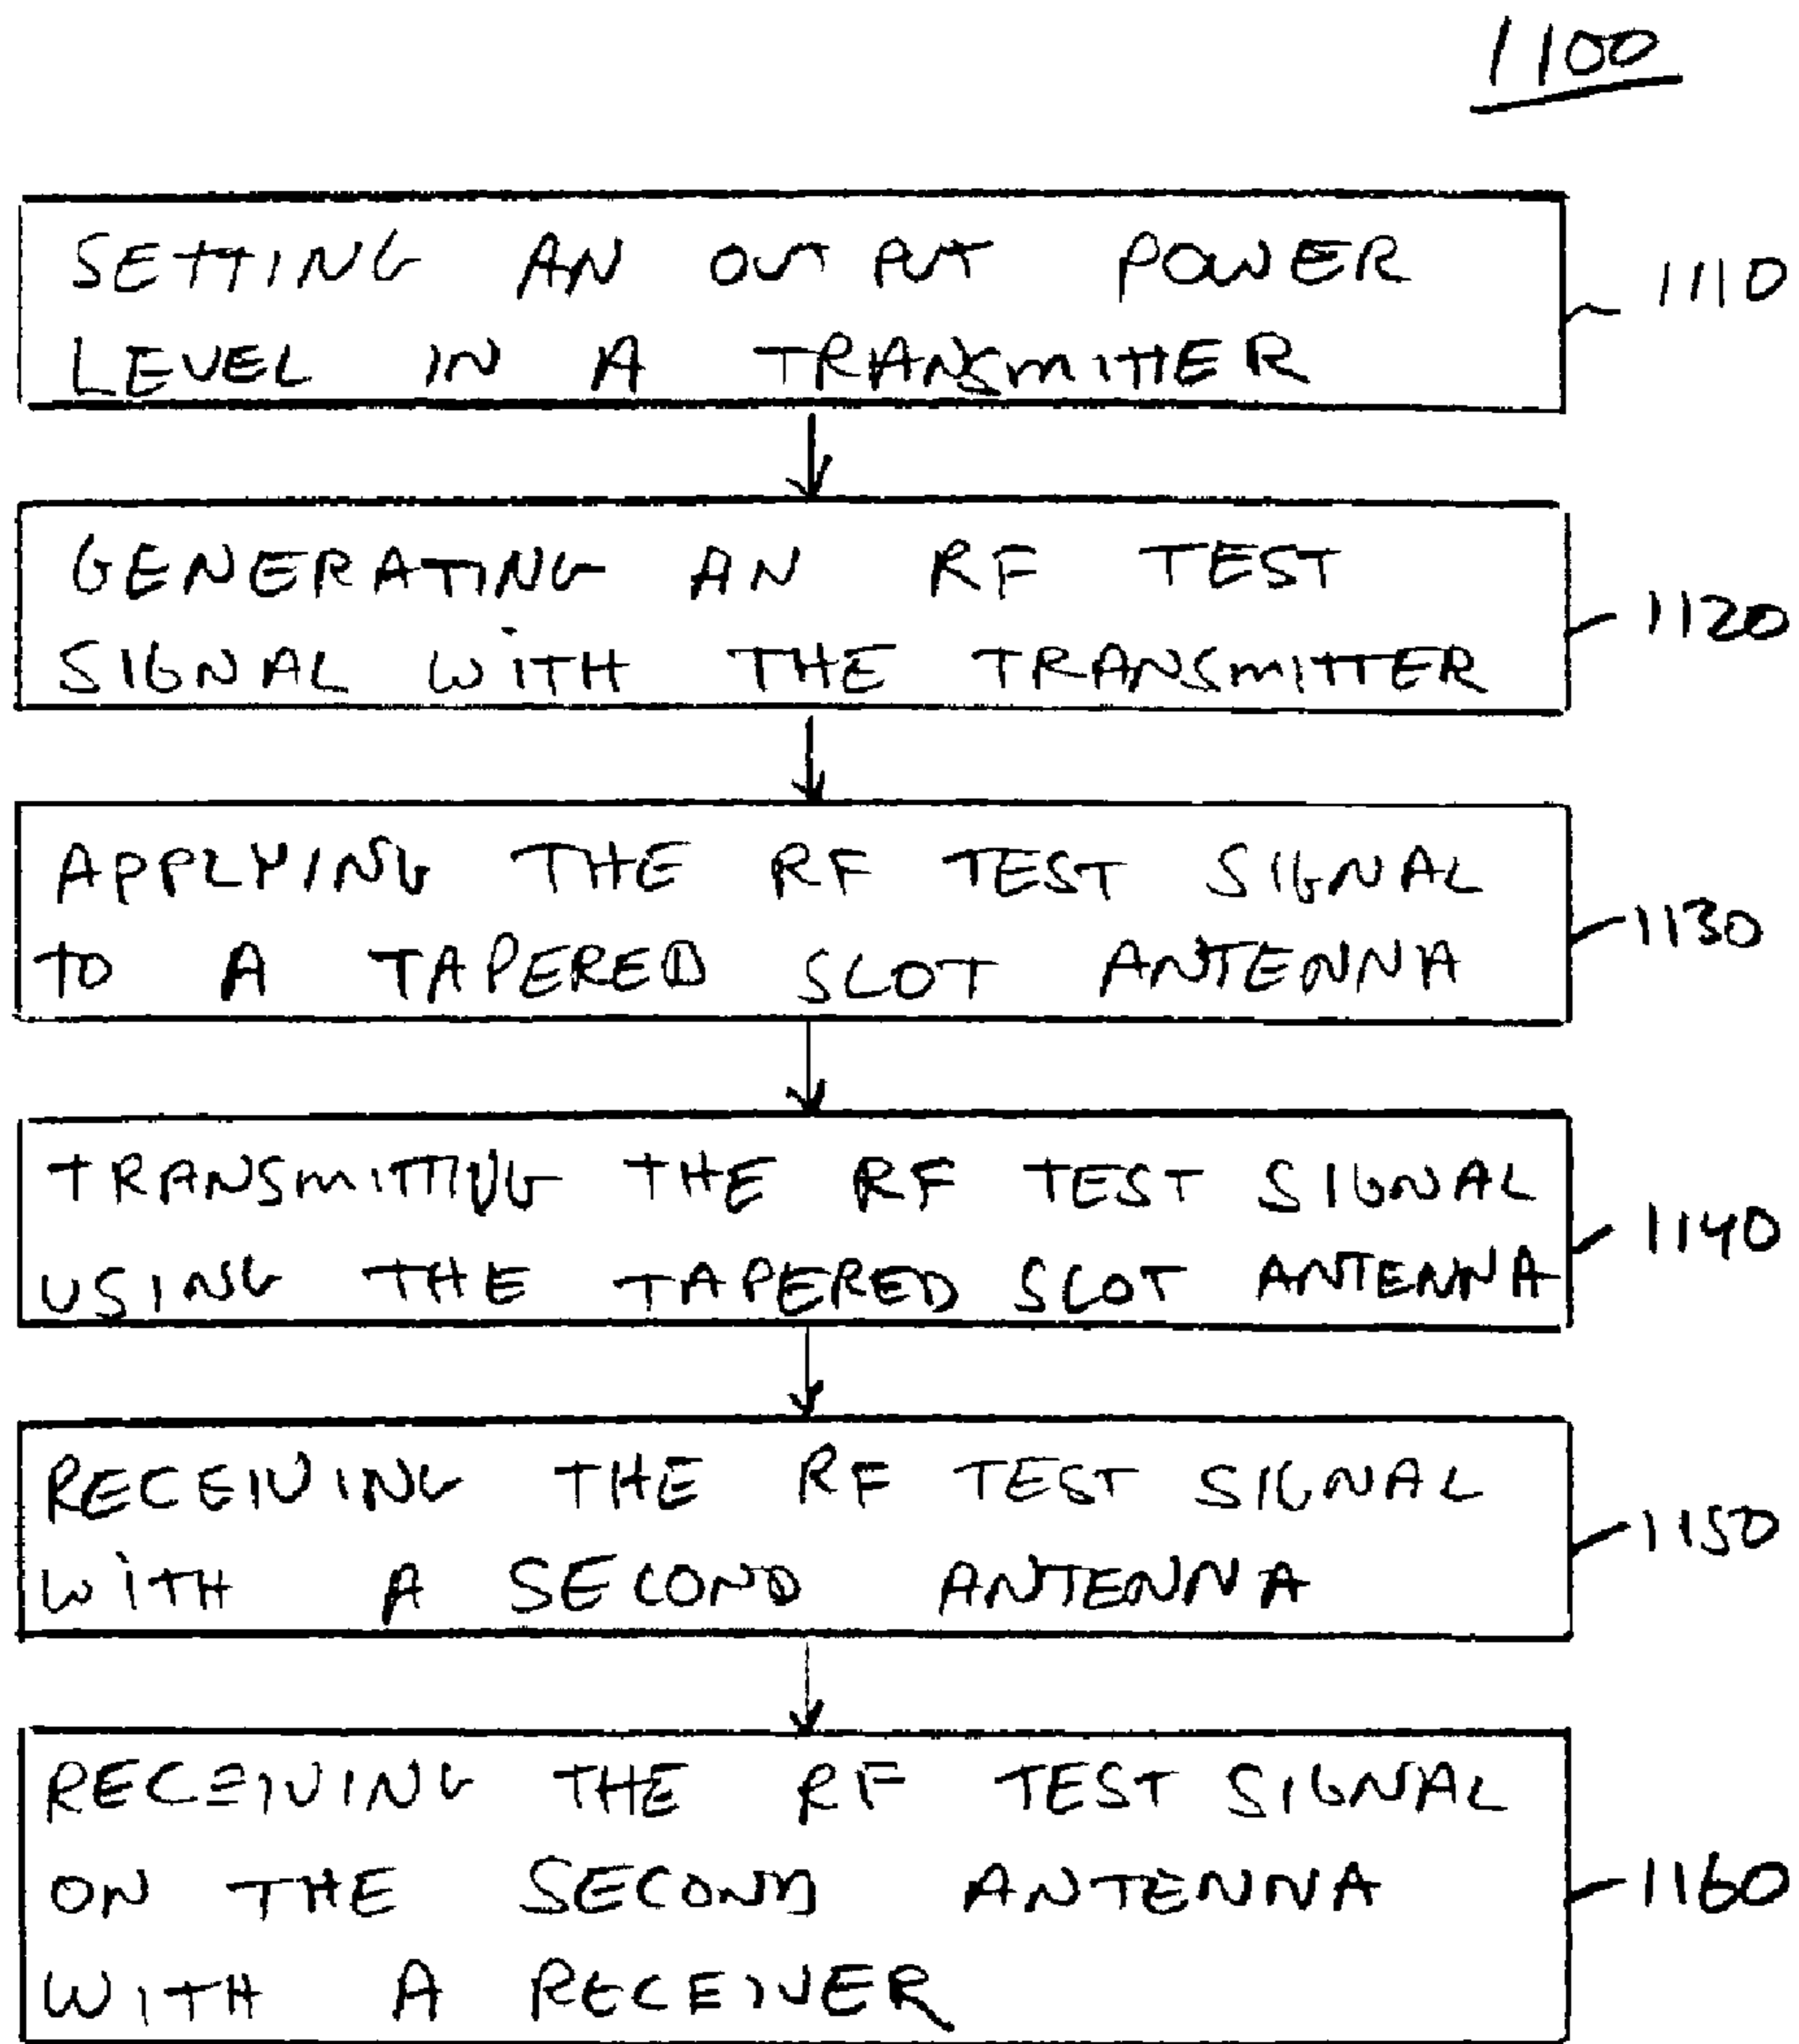 1100
SETTING AN OUTPUT POWER
LEVEL IN A TRANSMITTER
1110
GENERATING AN RF TEST
SIGNAL WITH THE TRANSMITTER
1120
APPLYING THE RF TEST SIGNAL
TO A TAPERED SLOT ANTENNA
1130
TRANSMITTING THE RF TEST SIGNAL
USING THE TAPERED SLOT ANTENNA
1140
RECEIVING THE RF TEST SIGNAL
WITH A SECOND ANTENNA
1150
RECEIVING THE RF TEST SIGNAL
ON THE SECOND ANTENNA
WITH A RECEIVER
1160